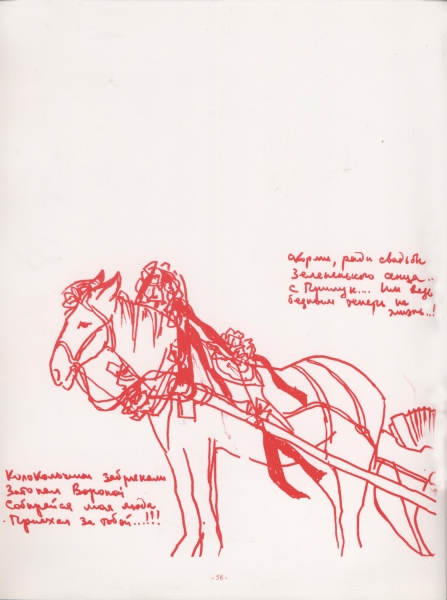 скорми, ради свадьбы
Зелененького сенца...
с Прищук.... Им ведь
бедным теперь не
жизнь..!
Колокольчики забрякали
Затопал Вороной
Собирайся моя люба
- Приехал за тобой...!!!
- 58 -